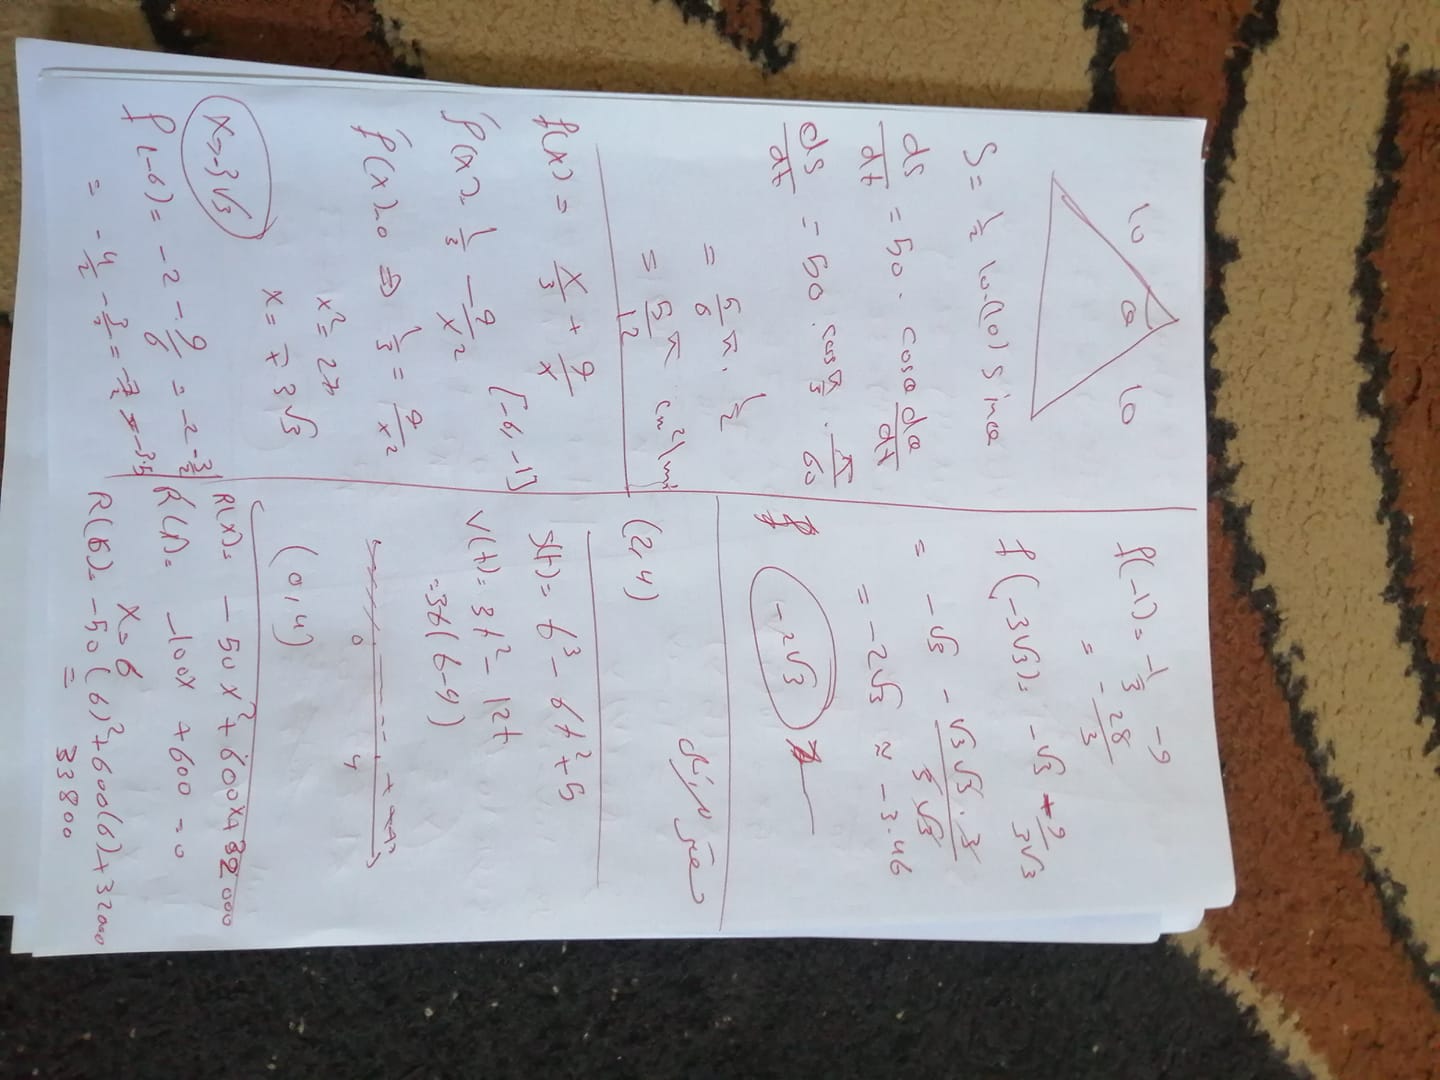 10
θ
10
S = 1/2 10·(10) sin θ
ds/dt = 50 · cos θ dθ/dt
ds/dt = 50 · cos π/3 · π/60
= 5/6 π · 1/2
= 5/12 π cm²/min
f(x) = x/3 + 9/x
[-6, -1]
f'(x) = 1/3 - 9/x²
f'(x) = 0 ⇒ 1/3 = 9/x²
x² = 27
x = ∓ 3√3
x = -3√3
f(-6) = -2 - 9/6 = -2 - 3/2
= -4/2 - 3/2 = -7/2 = -3.5
f(-1) = -1/3 - 9
= -28/3
f(-3√3) = -√3 + 9/3√3
= -√3 - √3√3·3/3√3
= -2√3 ≈ -3.46
-2√3
(2, 4)
S(t) = t³ - 6t² + 5
v(t) = 3t² - 12t
= 3t(t-4)
0
4
(0, 4)
R(x) = -50x² + 600x + 32000
R'(x) = -100x + 600 = 0
x = 6
R(6) = -50(6)² + 600(6) + 32000
= 33800